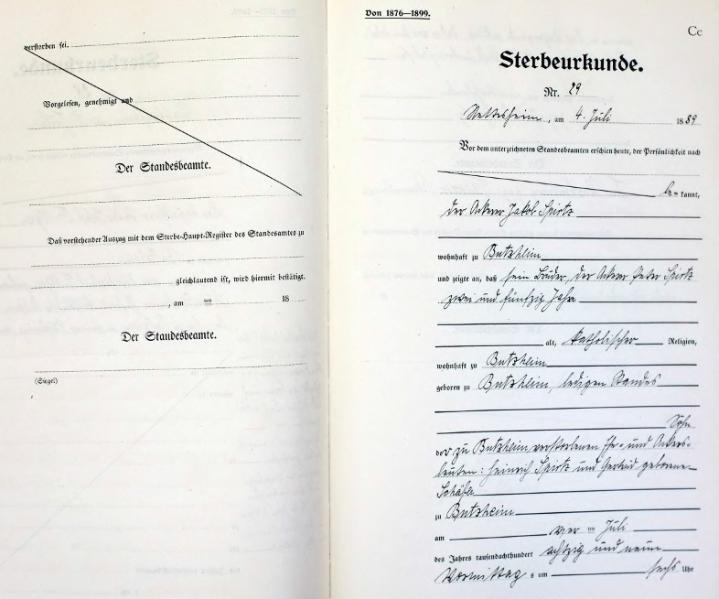 verstorben sei.
Vorgelesen, genehmigt und
Der Standesbeamte.
Daß vorstehender Auszug mit dem Sterbe-Haupt-Register des Standesamtes zu
gleichlautend ist, wird hiermit bestätigt.
, am 18
Der Standesbeamte.
(Siegel)
Von 1876—1899.
Cc
Sterbeurkunde.
Nr. 29
Nettesheim, am 4. Juli 1889
Vor dem unterzeichneten Standesbeamten erschien heute, der Persönlichkeit nach
be= kannt,
der Ackerer Jakob Spirtz
wohnhaft zu Butzheim
und zeigte an, daß sein Bruder, der Ackerer Peter Spirtz
zwei und fünfzig Jahre
alt, katholischer Religion,
wohnhaft zu Butzheim
geboren zu Butzheim, ledigen Standes
Sohn
der zu Butzheim verstorbenen Ehe- und Ackers-
leuten: Heinrich Spirtz und Gertrud geborene
Schäfer
zu Butzheim
am vier Juli
des Jahres tausendachthundert achtzig und neun
Vormittag s um sechs Uhr